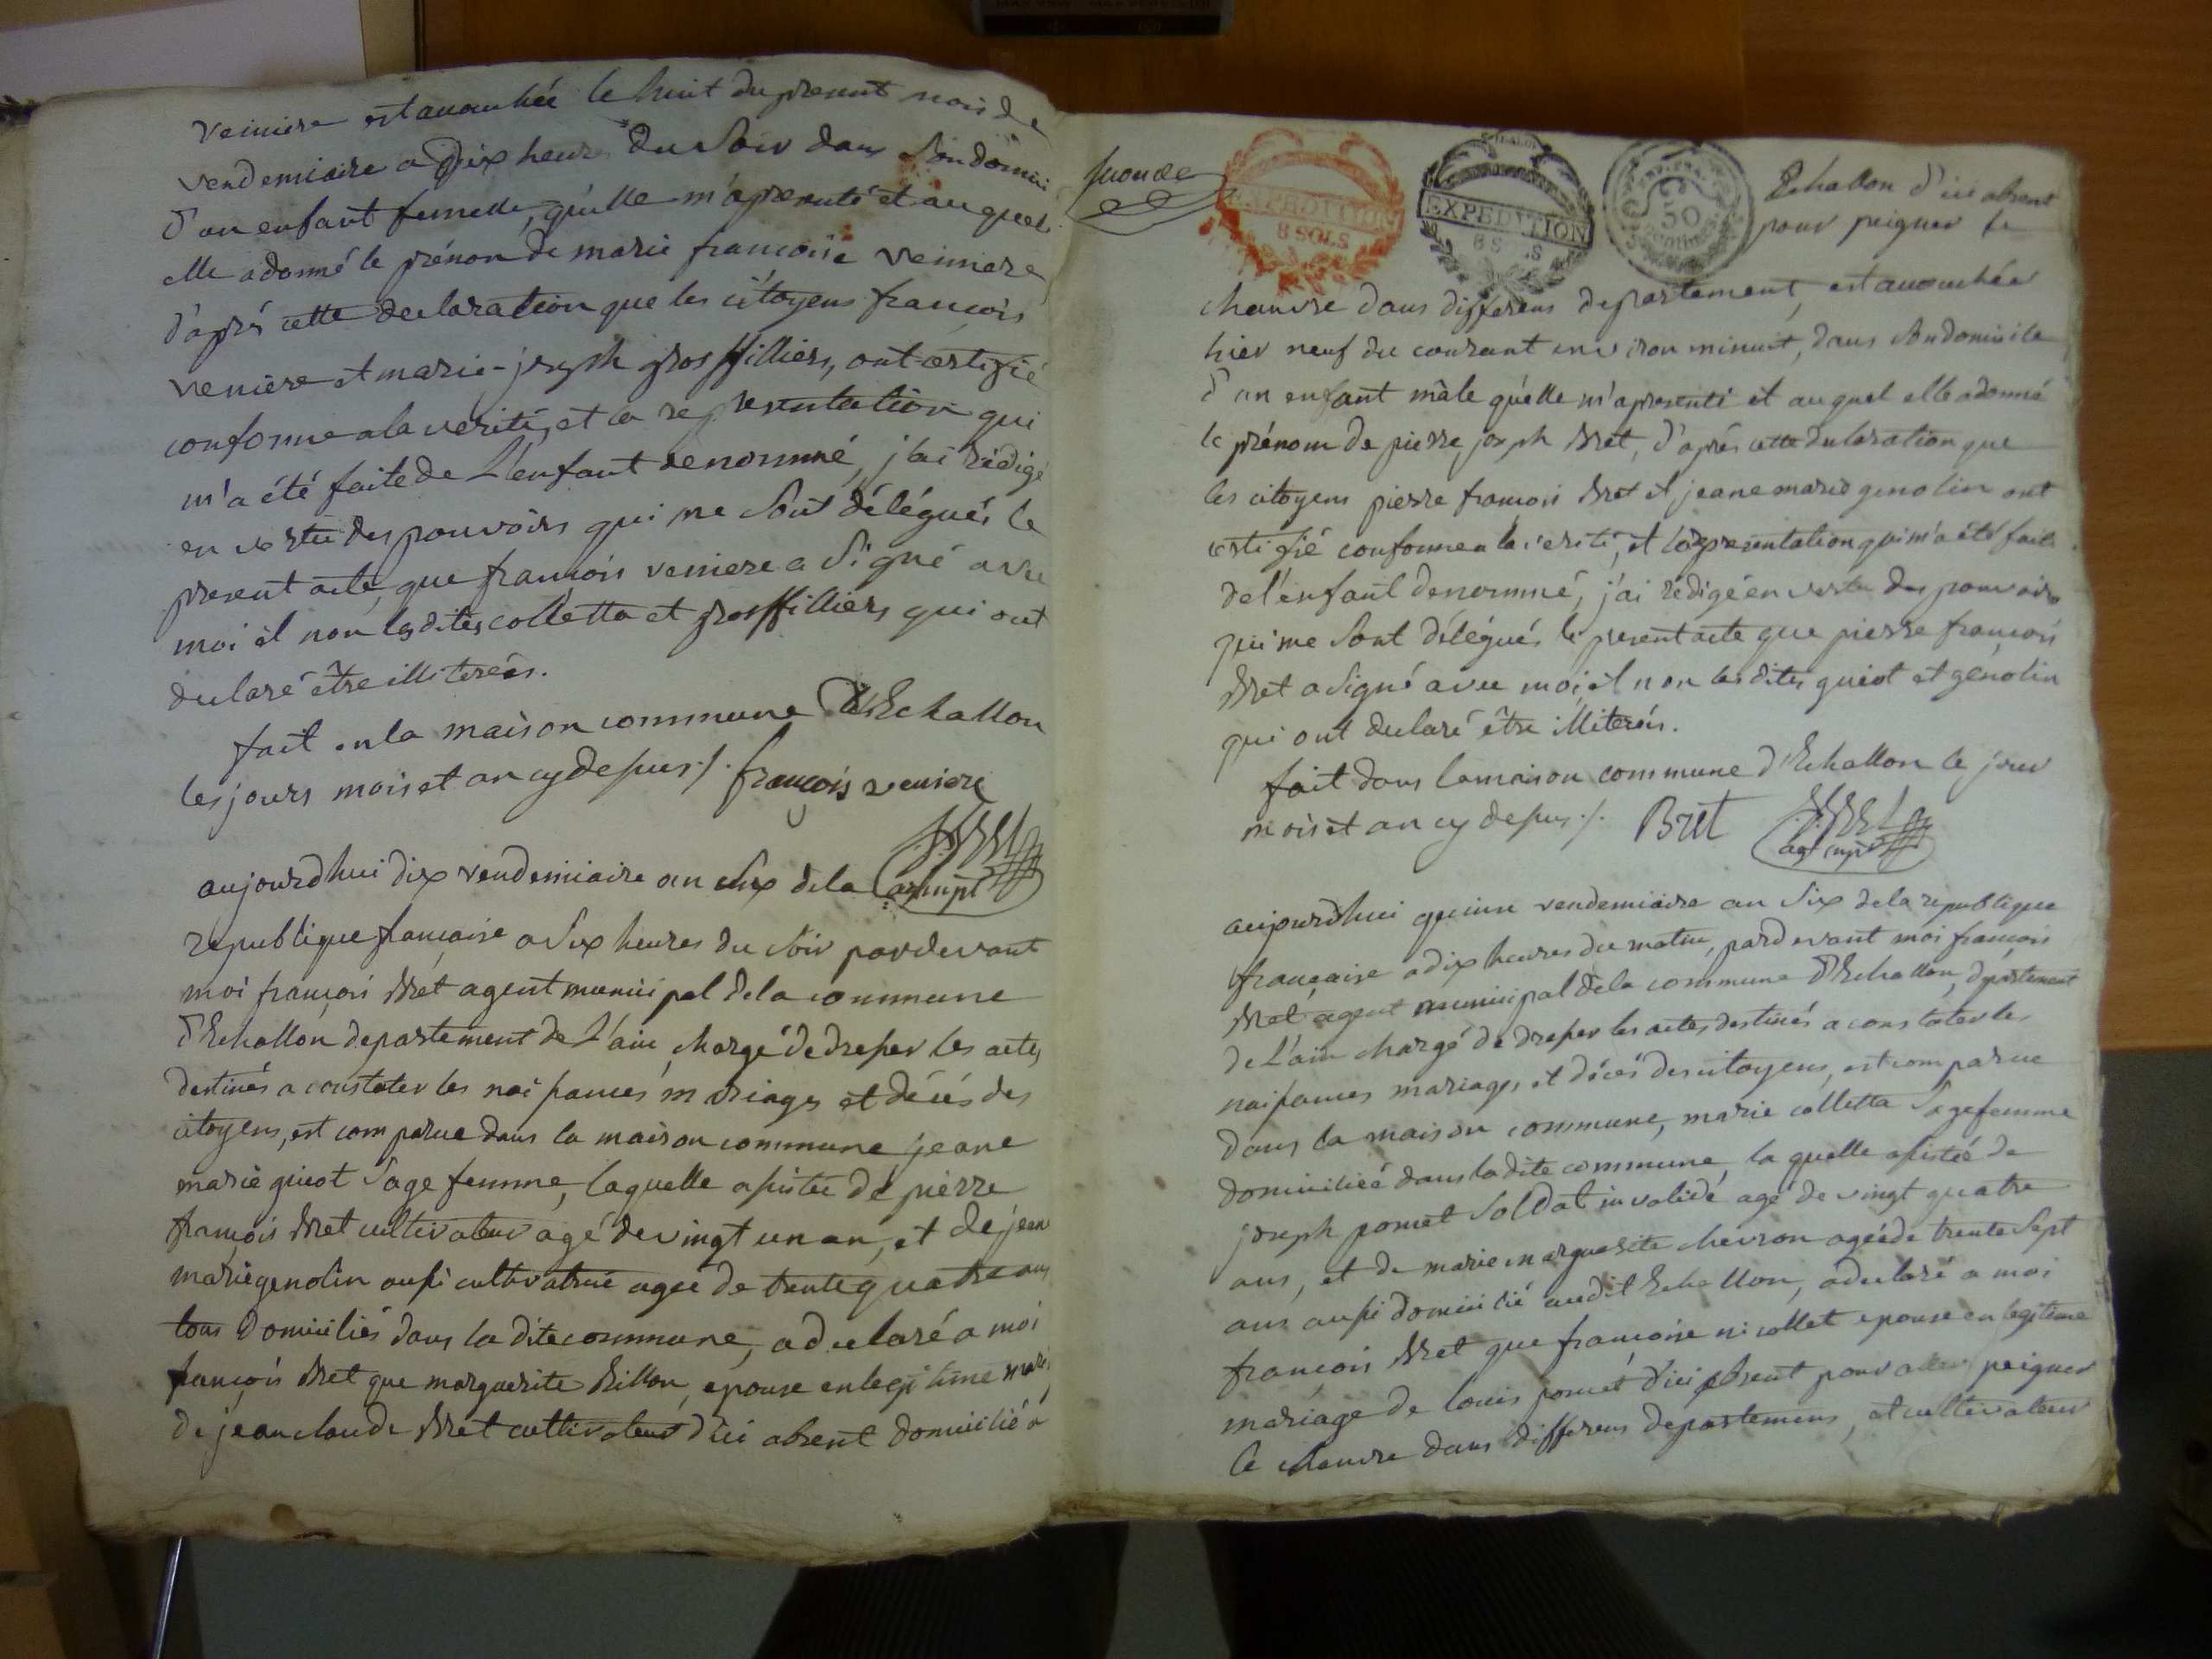 veniere est accouchée le huit du present mois de
vendemiaire a dix heures du soir dans son domicile
d'un enfant femelle, qu'elle m'a presenté et au quel
elle a donné le prénom de marie francoise veniere
d'après cette declaration que les citoyens francois
veniere et marie-joseph grosffilliers, ont certifié
conforme a la verité, et la representation qui
m'a été faite de L'enfant denommé, j'ai rédigé
en vertu des pouvoirs qui me sont délégués le
present acte, que francois veniere a signé avec
moi et non les dites colletta et grosffilliers qui ont
declaré être illiterées.
fait en la maison commune d'Echallon
les jours mois et an cy dessus ./. françois veniere
aujourd'hui dix vendemiaire an six de la
ag munpl
republique française a six heures du soir pardevant
moi françois Bret agent municipal de la commune
d'Echallon, departement de L'ain, chargé de dresser les actes
destinés a constater les naissances mariages et décés des
citoyens, est comparue dans la maison commune jeane
marie guiot sage femme, laquelle assistée de pierre
françois Bret cultivateur agé de vingt un an, et de jean
marie genolin aussi cultivatrice agée de trente quatre ans
tous domiciliés dans la dite commune, a declaré a moi
françois Bret que marguerite Billon, epouse en legitime mari
de jean claude Bret cultivateur d'ici absent domicilié a
seconde
EXPEDITION
8 SOLS
EXPEDITION
8 S S
50
centimes
Echallon d'ici absent
pour peigner le
chanvre dans differens departement, est accouchée
hier neuf du courant environ minuit, dans son domicile
d'un enfant mâle qu'elle m'a presenté et au quel elle a donné
le prénom de pierre joseph Bret, d'après cette declaration que
les citoyens pierre francois Bret et jeane marie genolin ont
certifié conforme a la verité, et la representation qui m'a été faite
de l'enfant denommé, j'ai rédigé en vertu des pouvoirs
qui me sont délégués le present acte que pierre francois
Bret a signé avec moi et non les dites guiot et genolin
qui ont declaré être illiterés.
fait dans la maison commune d'Echallon le jour
mois et an cy dessus ./. Bret
ag munpl
aujourd'hui quinze vendemiaire an six de la republique
française a dix heures du matin, pardevant moi francois
Bret agent municipal de la commune d'Echallon, departement
de L'ain chargé de dresser les actes destinés a constater les
naissances mariages et décés des citoyens, est comparue
dans la maison commune, marie colletta sage femme
domiciliée dans la dite commune, la quelle assistée de
joseph poncet soldat invalide agé de vingt quatre
ans, et de marie marguerite chevron agée de trente sept
ans aussi domicilié audit Echallon, a declaré a moi
francois Bret que françoise nicollet epouse en legitime
mariage de louis poncet d'ici absent pour aller peigner
le chanvre dans differens departemens, et cultivateur